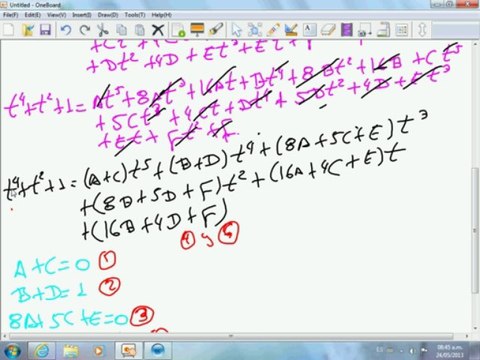 Untitled - OneBoard
File Edit View Insert Format Tools Resources Desktop Help
+ Dt² + 4D + Et³ + Et +
t⁴+t²+1 = At⁵ + 8At³ + 16At + Bt⁴ + 8Bt² + 16B + Ct⁵
+ 5Ct³ + 4Ct + Dt⁴ + 5Dt² + 4D + Et³
+ Et + Ft² + F
t⁴+t²+1 = (A+C)t⁵ + (B+D)t⁴ + (8A+5C+E)t³
+(8B+5D+F)t² + (16A+4C+E)t
+(16B+4D+F)
A+C=0 ①
B+D=1 ②
8A+5C+E=0 ③
ES
08:45 a.m.
24/05/2013